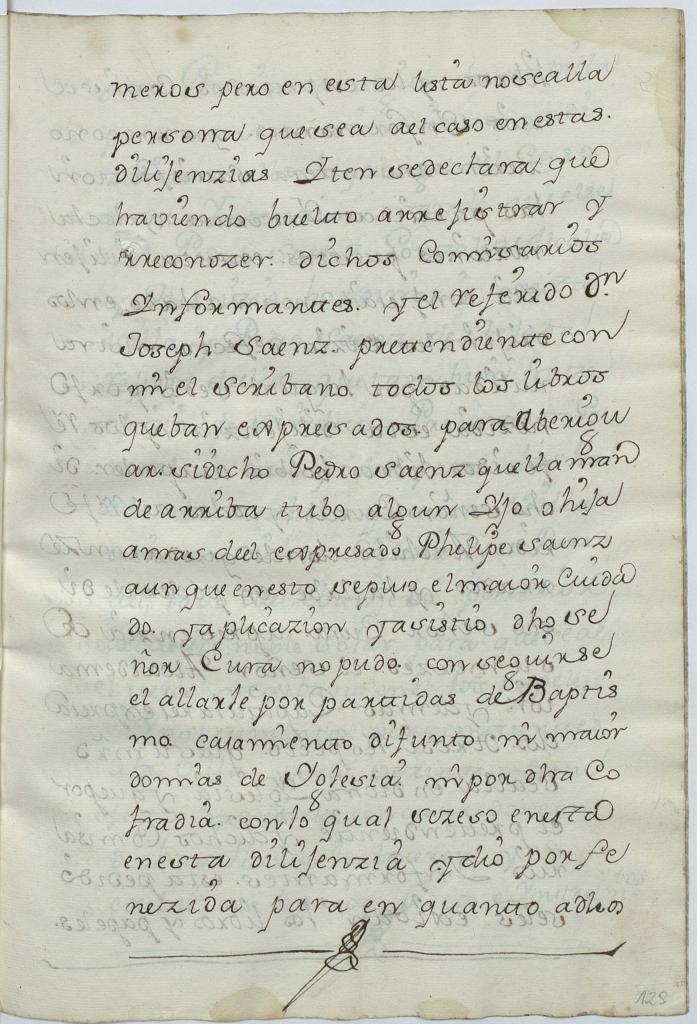 meros pero en esta lista nosealla
persona quesea ael caso enestas.
dilijenzias Yten sedeclara que
haviendo buelto arrejistrar y
rreconozer. dichos Comisarios
Ynformanttes. y el referido Dn
Joseph Saenz. prettendientte con
mi el scribano todos los libros
queban expresados. para aberigu
ar. sidicho Pedro saenz quellaman
de arriba tubo algun Yjo o hija
amas deel expresado Philipe saenz
aunque enesto sepuso elmaior Cuida
do. yaplicazion yasistio dho se
ñor Cura nopudo. conseguirse
el allarle por parttidas de Baptis
mo. casamientto difunto ni maior
domias de Yglesia. ni por dha Co
fradia. conlo qual sezeso enesta
enesta dilijenzia ydio por fe
nezida para en quantto adhos
128